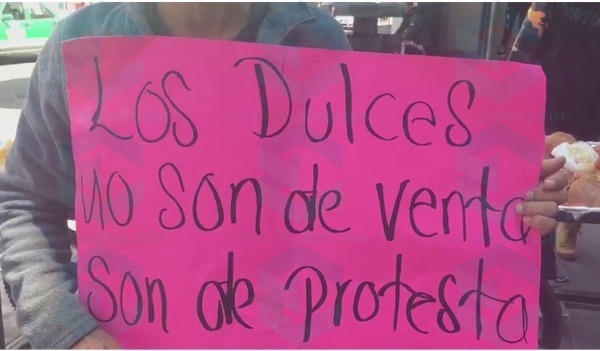 Los Dulces
no son de venta
son de protesta